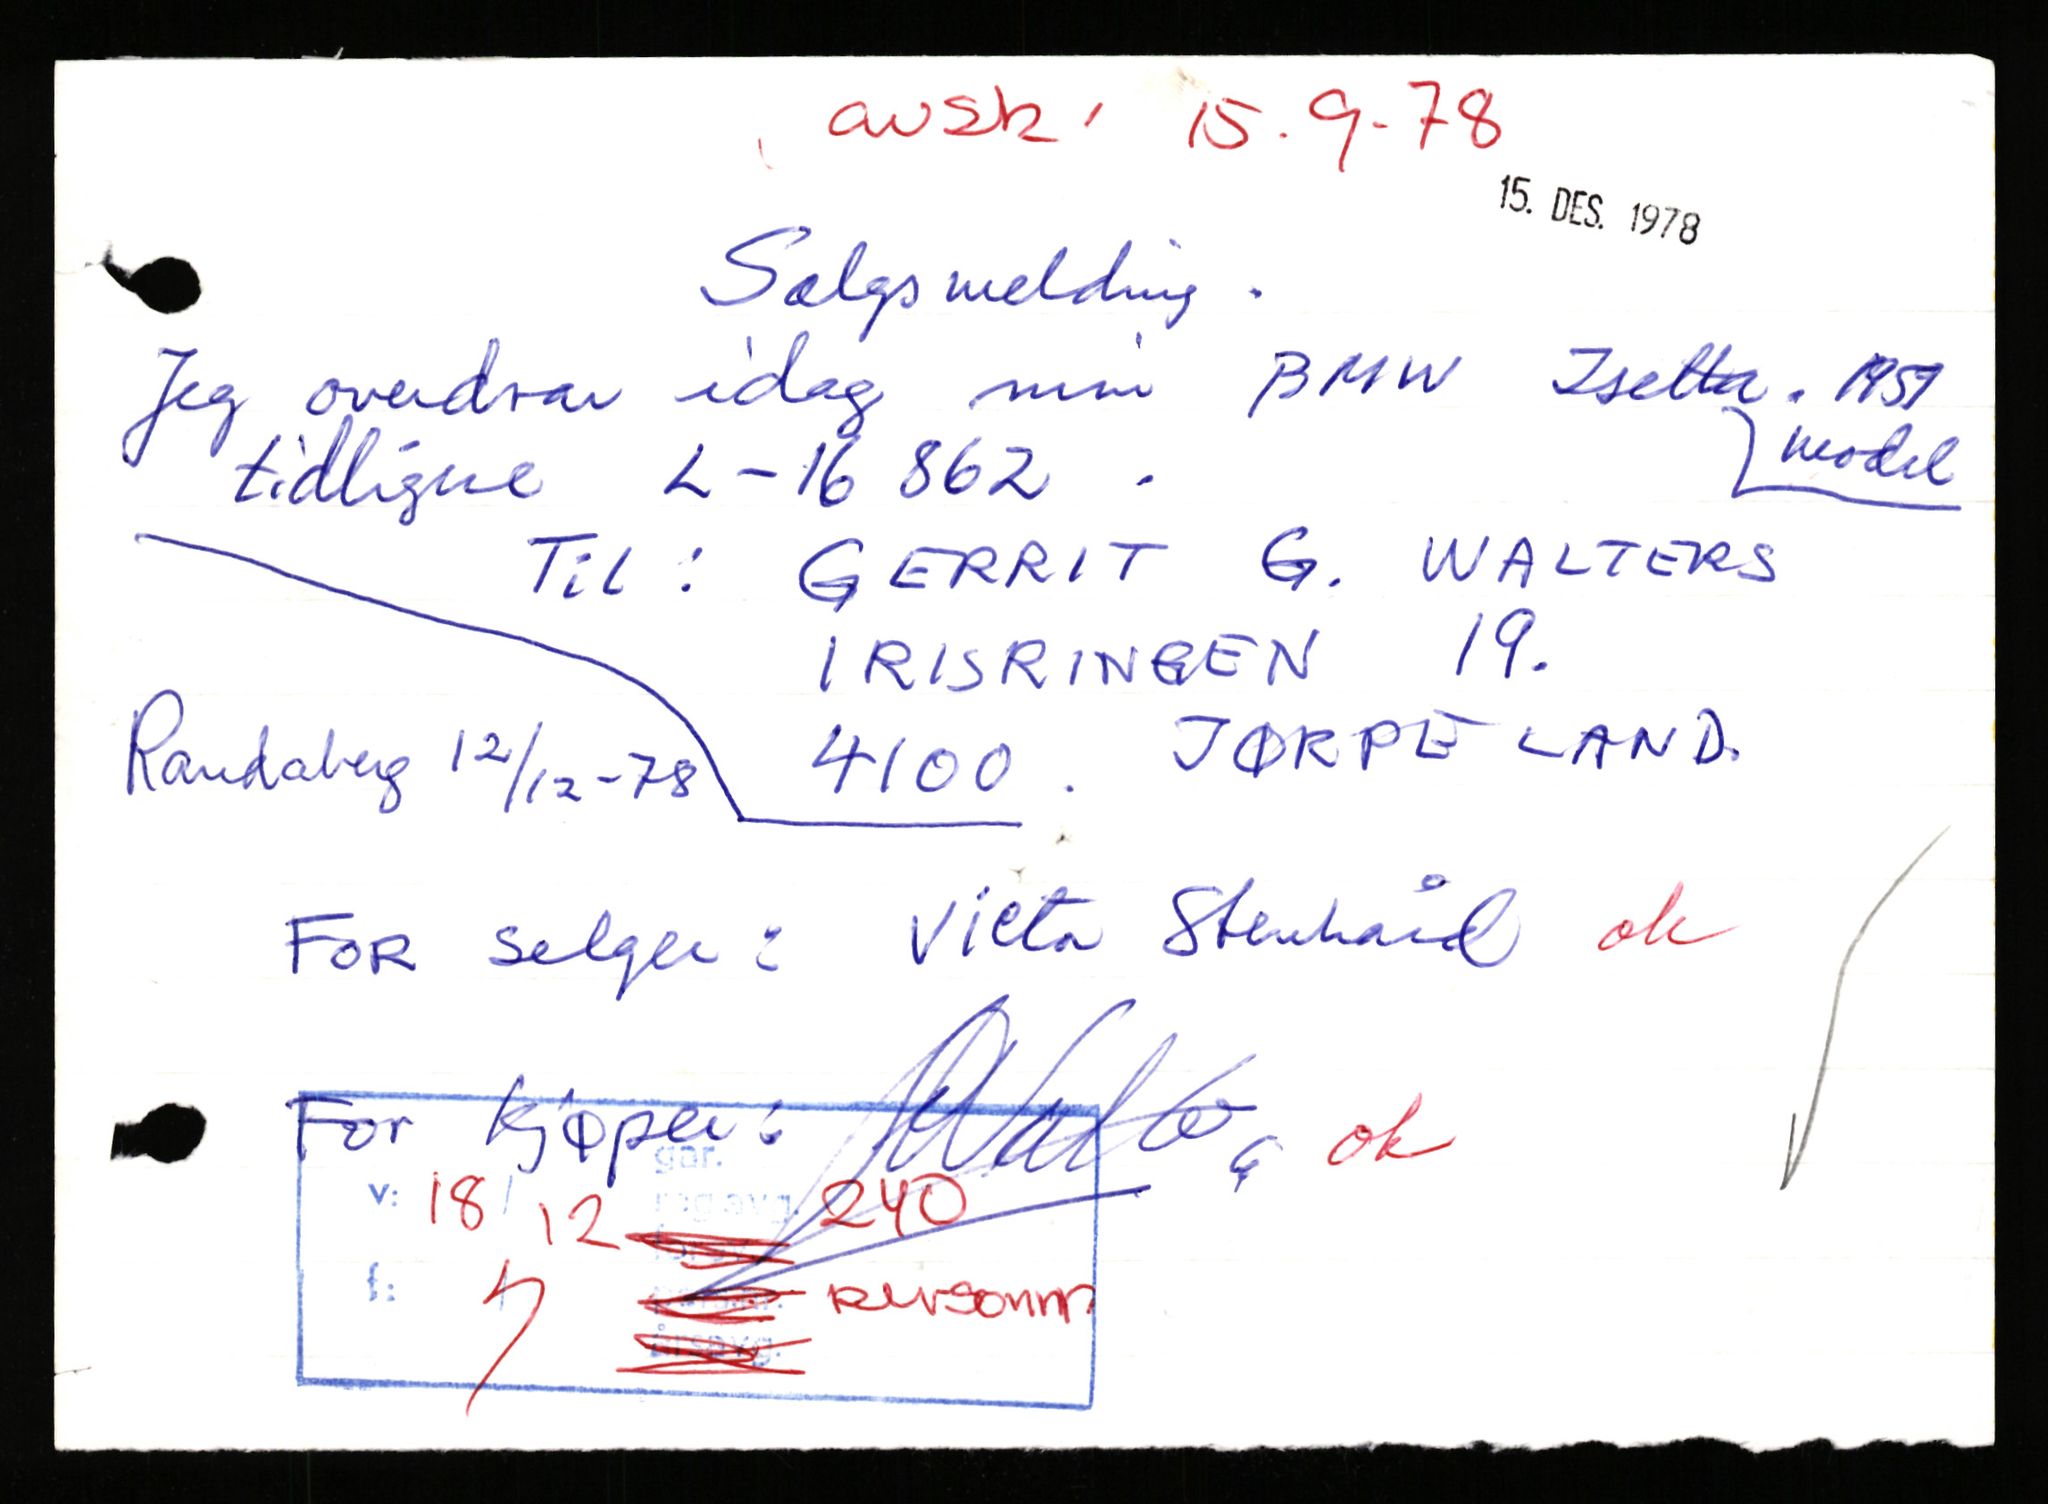 avsk. 15.9-78
15. DES. 1978
Salgsmelding.
Jeg overdrar idag min BMW Isetta. 1959
model
tidligere L-16 862.
Til: GERRIT G. WALTERS
IRISRINGEN 19.
4100. JØRPELAND.
Randaberg 12/12-78
FOR selger: Victor Stenhård ok
For kjøper: ok
gar.
v: 18/12 reg.avg. 240
f: personm
årsavg.